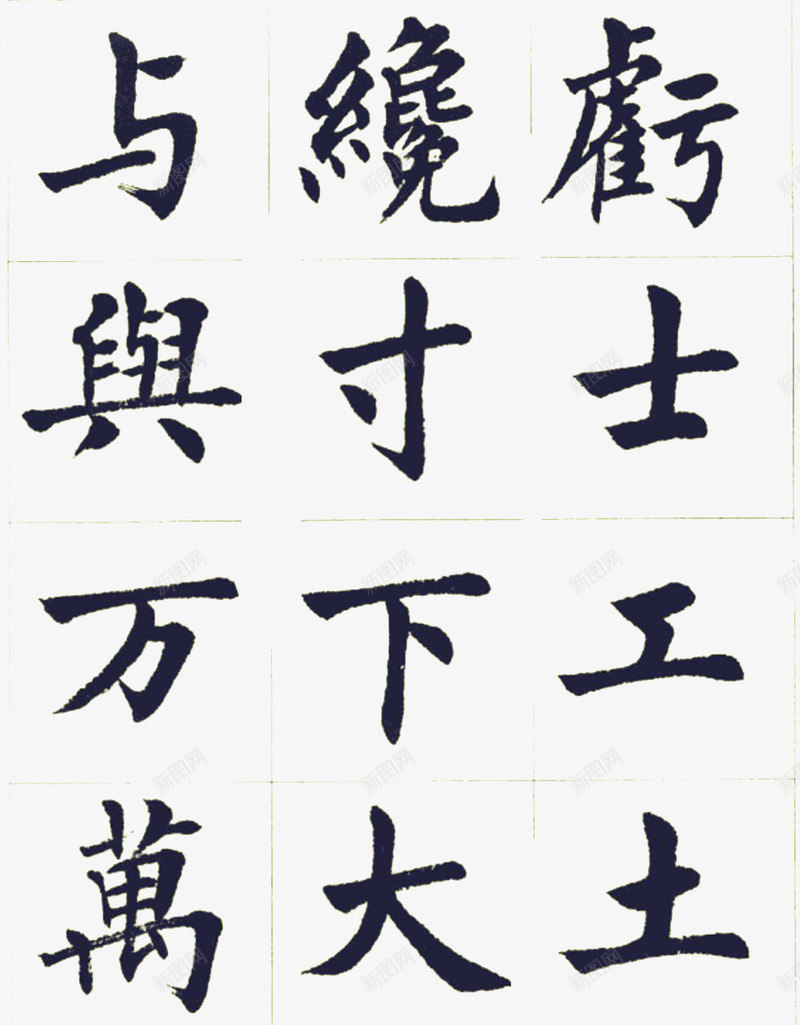 虧士工土
纔寸下大
与與万萬